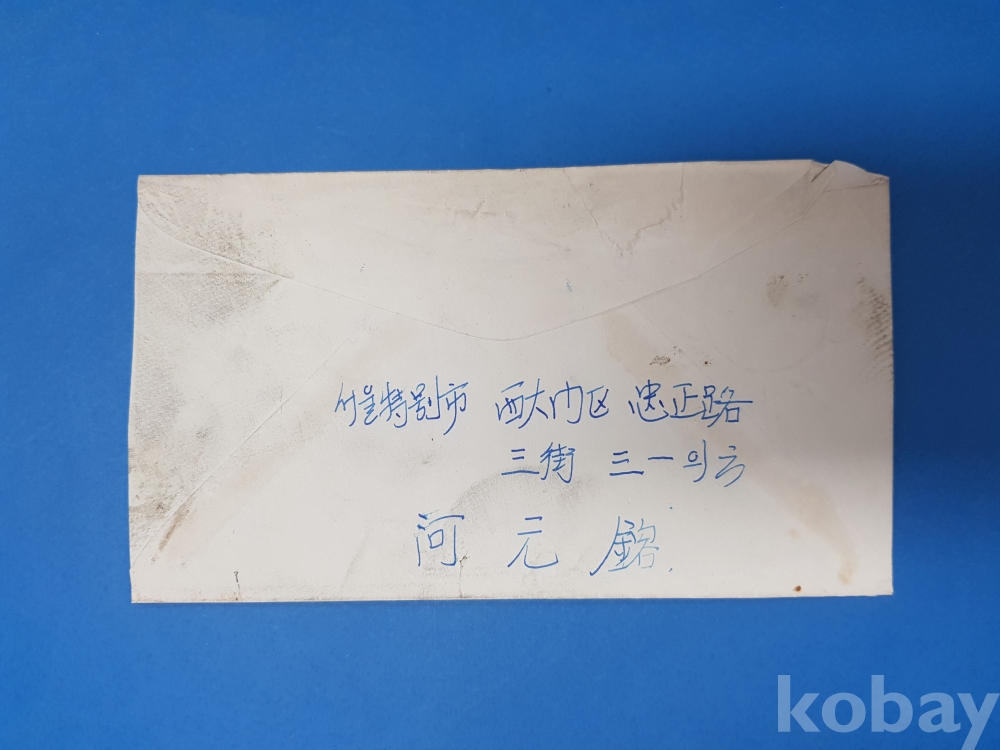 서울特別市 西大门区 忠正路
三街 三一의六
河 元 銘
kobay